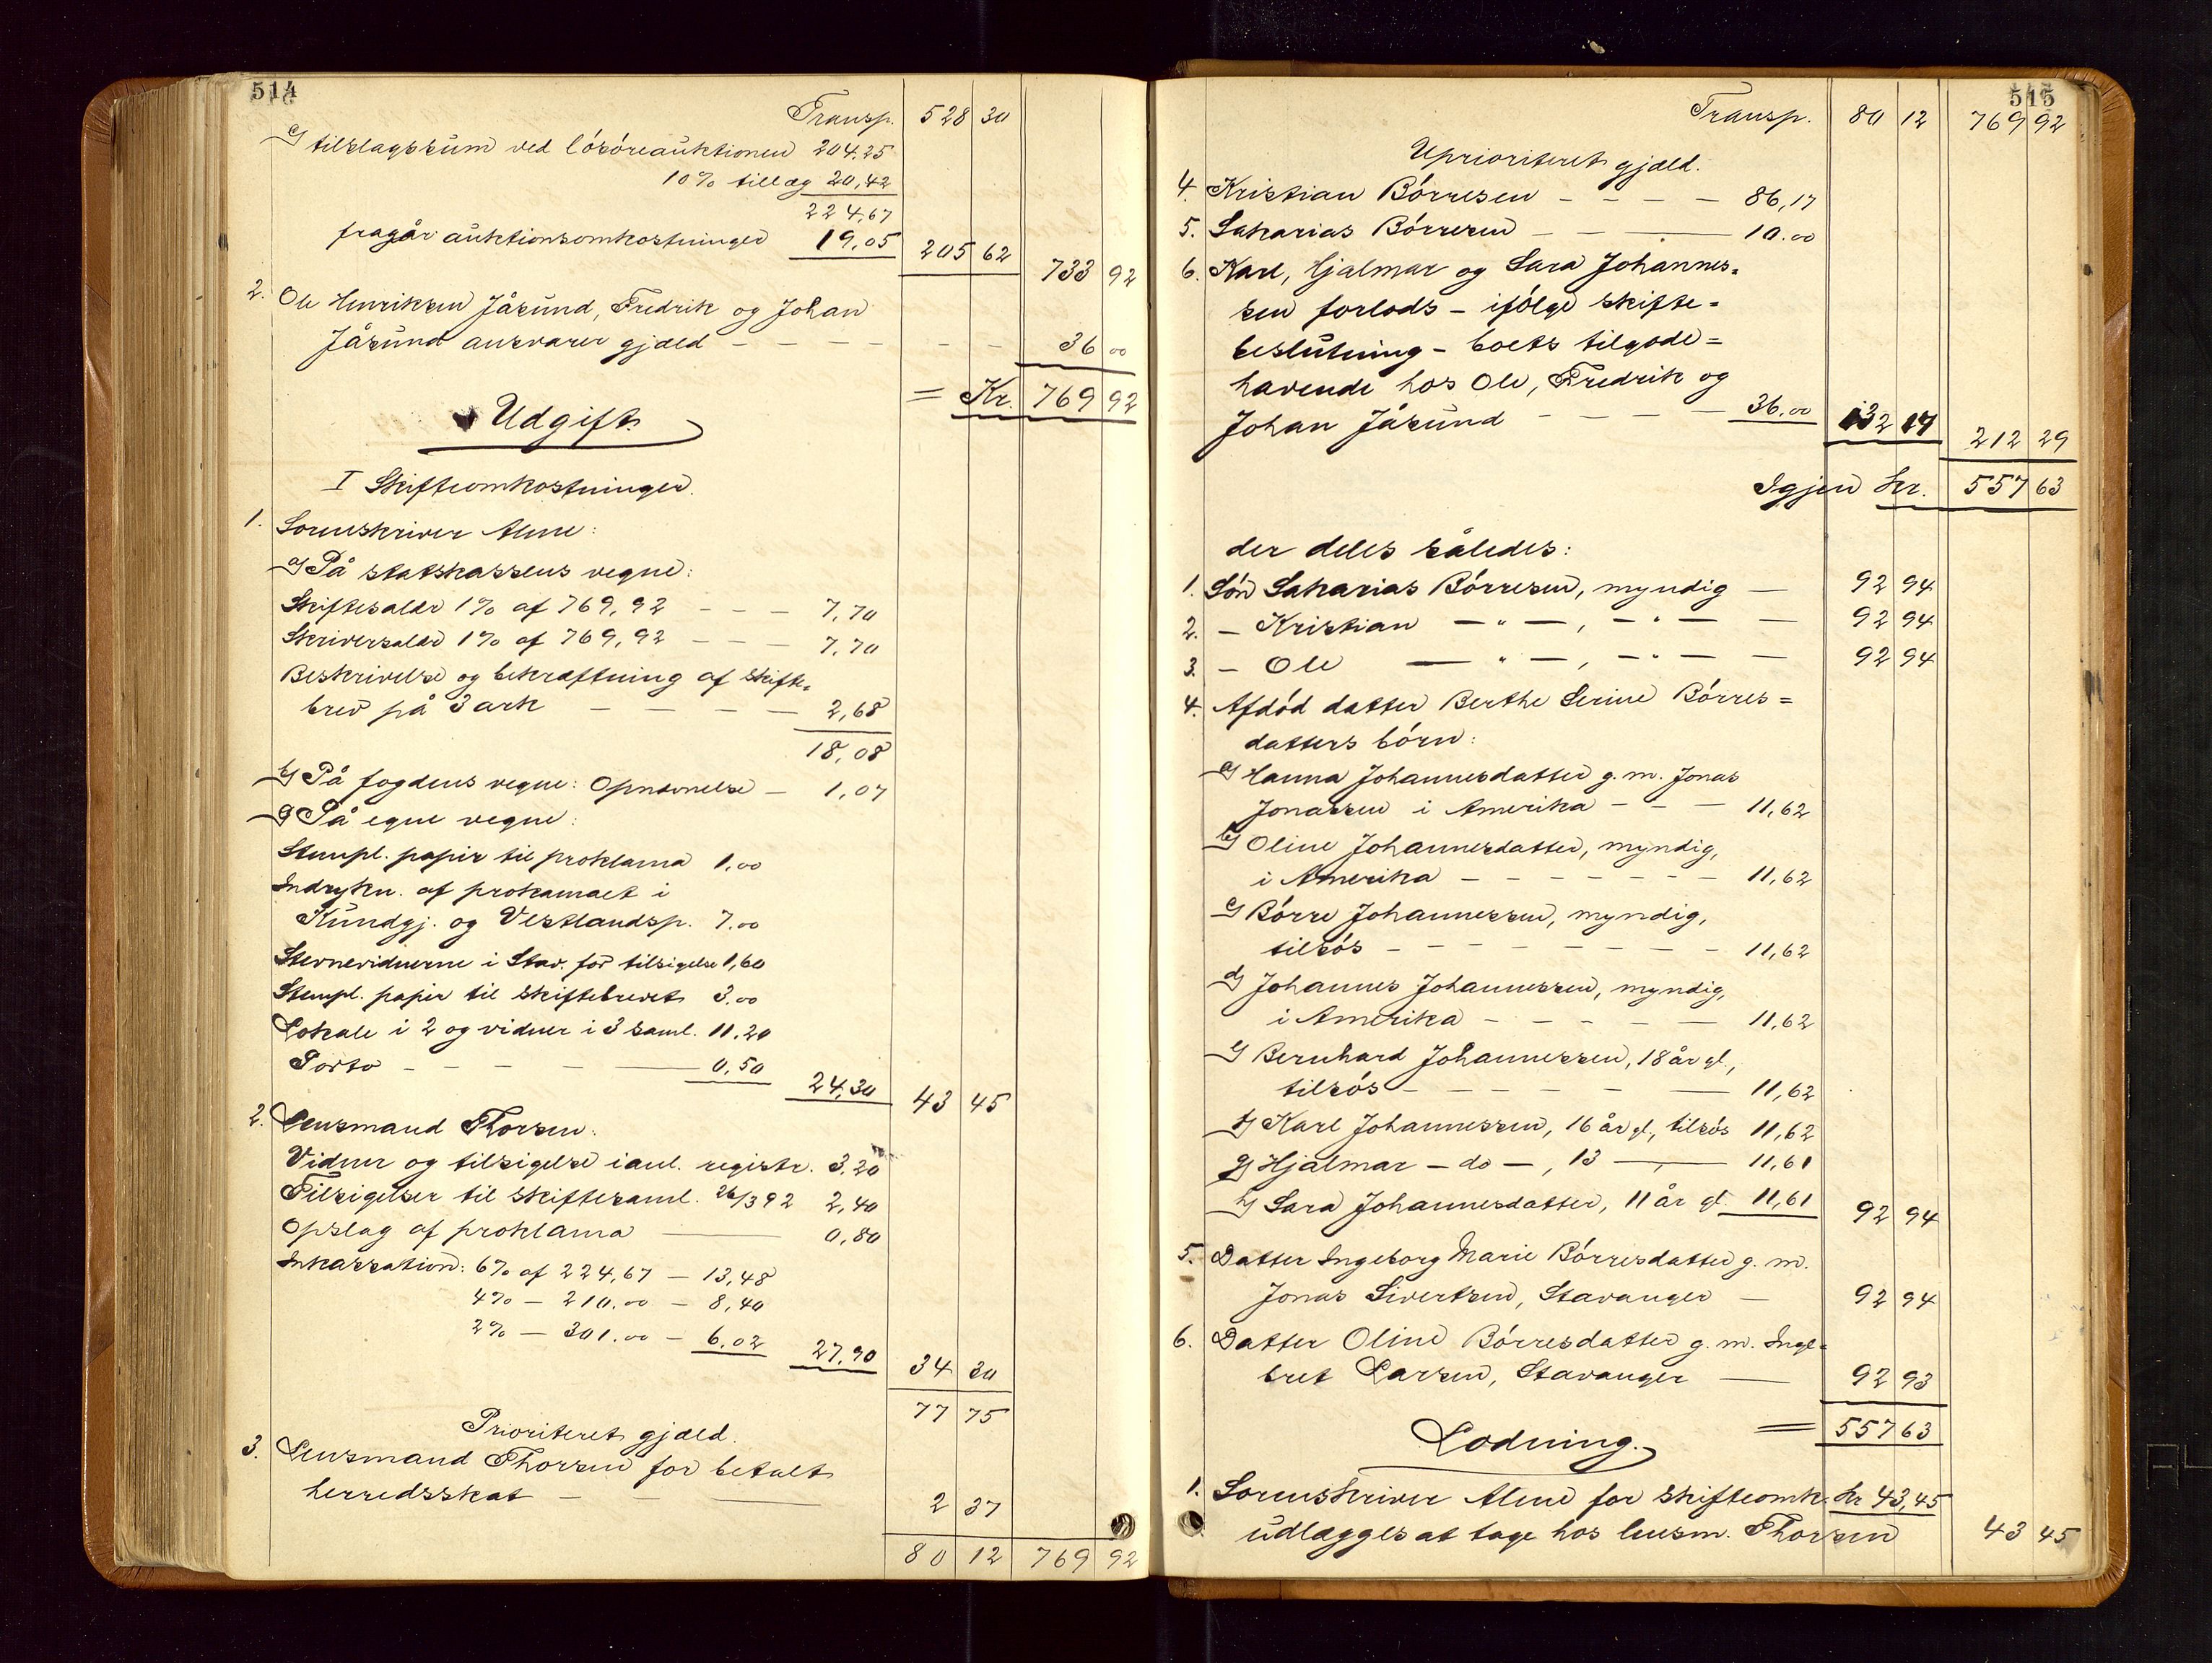 514
Transp. 528 30
c) tilslagssum ved lösöreauktionen 204.25
10% tillæg 20,42
224,67
fragår auktionsomkostninger 19,05 205 62 733 92
2. Ole Henriksen Jåsund, Fredrik og Johan
Jåsund ansvarer gjæld – – – – – – 36 00
= Kr. 769 92
Udgift.
I Skifteomkostninger.
1. Sorenskriver Alme:
a) På statskassens vegne:
Skiftesalær 1% af 769,92 – – – 7,70
Skriversalær 1% af 769,92 – – – 7,70
Beskrivelse og bekræftning af skifte-
brev på 3 ark – – – – 2,68
18,08
b) På fogdens vegne: Opnævnelse – 1,07
c) På egne vegne:
Stempl. papir til proklama 1.00
Indrykn. af prokamaet i
Kundgj. og Vestlandsp. 7.00
Stevnevidnerne i Stav. for tilsigelse 1,60
Stempl. papir til skiftebrevet 3.00
Lokale i 2 og vidner i 3 saml. 11.20
Porto – – – – 0,50 24,30 43 45
2. Lensmand Thorsen:
Vidner og tilsigelse i anl. registr. 3.20
Tilsigelser til skiftesaml. 26/3 92 2,40
Opslag af proklama — 0,80
Inkassation: 6% af 224,67 – 13,48
4% – 210.00 – 8,40
2% – 301.00 – 6.02 27,90 34 30
77 75
Prioriteret gjæld.
3. Lensmand Thorsen for betalt
herredsskat – — 2 37
80 12 769 92
515
Transp. 80 12 769 92
Uprioriteret gjæld.
4. Kristian Börresen – – – – 86,17
5. Sakarias Börresen – – — 10.00
6. Karl, Hjalmar og Sara Johannes-
sen forlods – ifölge skifte-
beslutning – boets tilgode-
havende hos Ole, Fredrik og
Johan Jåsund – – – – 36.00 132 17 212 29
Igjen Kr. 557 63
der deles således:
1. Sön Sakarias Börresen, myndig — 92 94
2. – Kristian — " —, – " — — 92 94
3. – Ole — " —, – " — — 92 94
4. Afdöd datter Berthe Serine Börres-
datters börn:
a) Hanna Johannesdatter g. m. Jonas
Jonassen i Amerika – – – 11,62
b) Oline Johannesdatter, myndig,
i Amerika – – – – – – – 11,62
c) Börre Johannessen, myndig,
tilsös – – – – – – – – 11,62
d) Johannes Johannessen, myndig,
i Amerika – – – – — 11,62
e) Bernhard Johannessen, 18 år gl.,
tilsös – – – – – — 11,62
f) Karl Johannessen, 16 år gl., tilsös 11,62
g) Hjalmar – do –, 13 — " — 11,61
h) Sara Johannesdatter, 11 år gl. 11,61 92 94
5. Datter Ingeborg Marie Börresdatter g. m.
Jonas Sivertsen, Stavanger — 92 94
6. Datter Oline Börresdatter g. m. Inge-
bret Larsen, Stavanger — 92 93
= 557 63
Lodning.
1. Sorenskriver Alme for skifteomk. Kr 43,45
udlægges at tage hos lensm. Thorsen 43 45